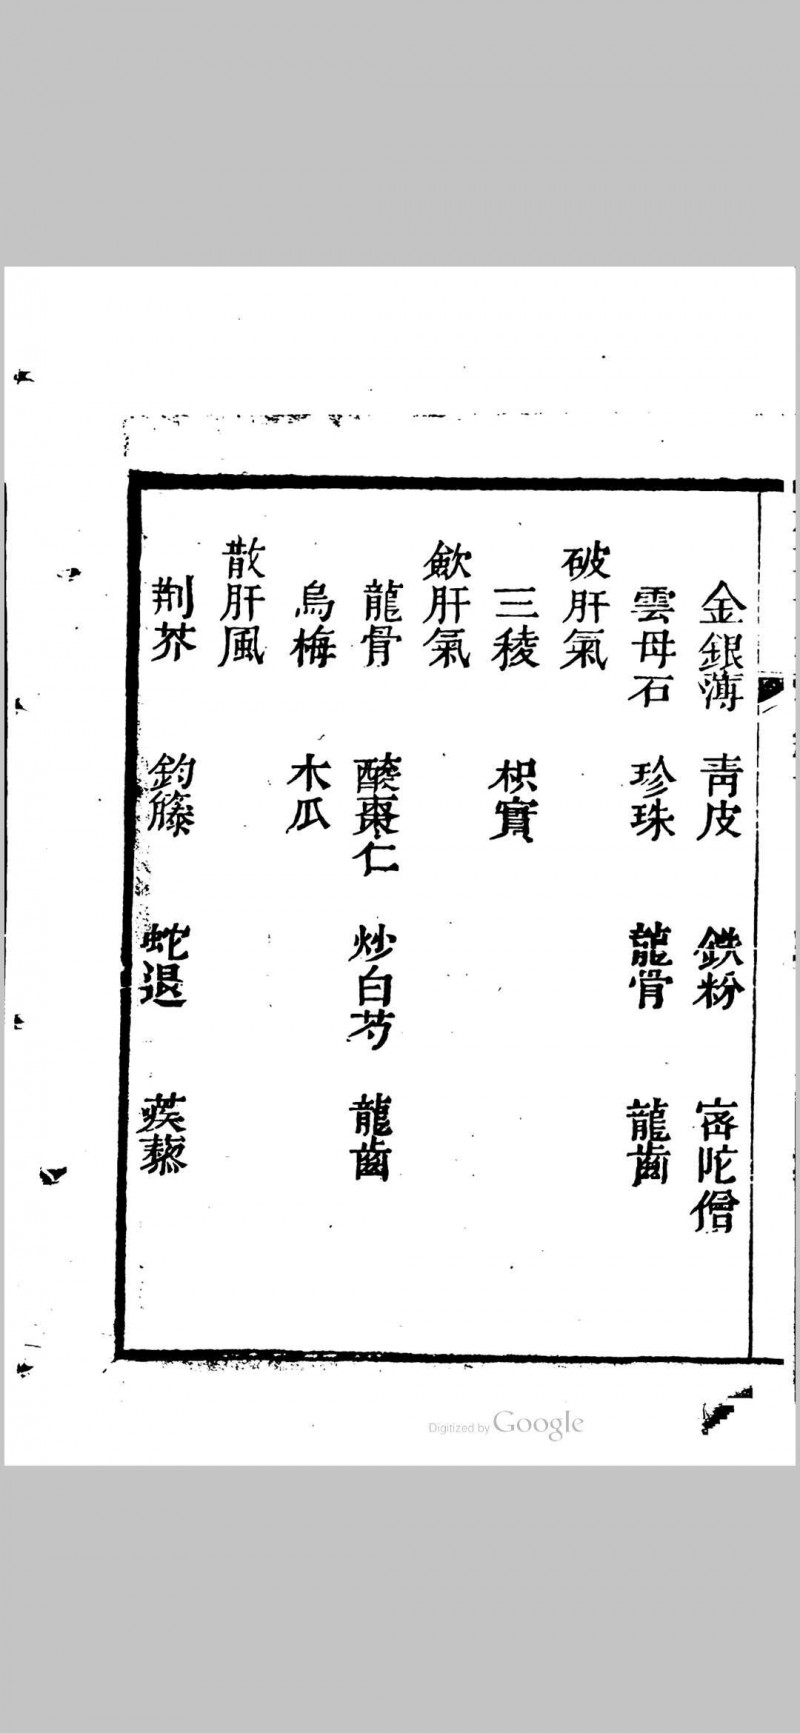 金銀薄 青皮 鉄粉 宻陀僧
雲母石 珍珠 龍骨 龍齒
破肝氣
三稜 枳實
歛肝氣
龍骨 酸棗仁 炒白芍 龍齒
烏梅 木瓜
散肝風
荆芥 鈎籐 蛇退 蒺藜
Digitized by Google